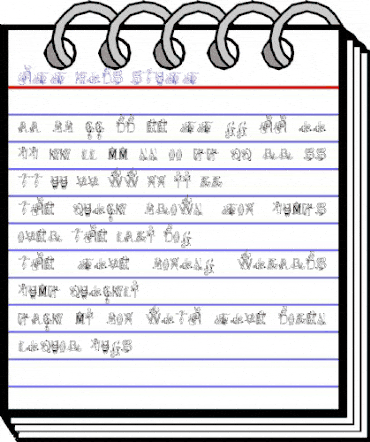 AA BB CC DD EE FF GG HH II
JJ KK LL MM NN OO PP QQ RR SS
TT UU VV WW XX YY ZZ
THE QUICK BROWN FOX JUMPS
OVER THE LAZY DOG
THE FIVE BOXING WIZARDS
JUMP QUICKLY
PACK MY BOX WITH FIVE DOZEN
LIQUOR JUGS